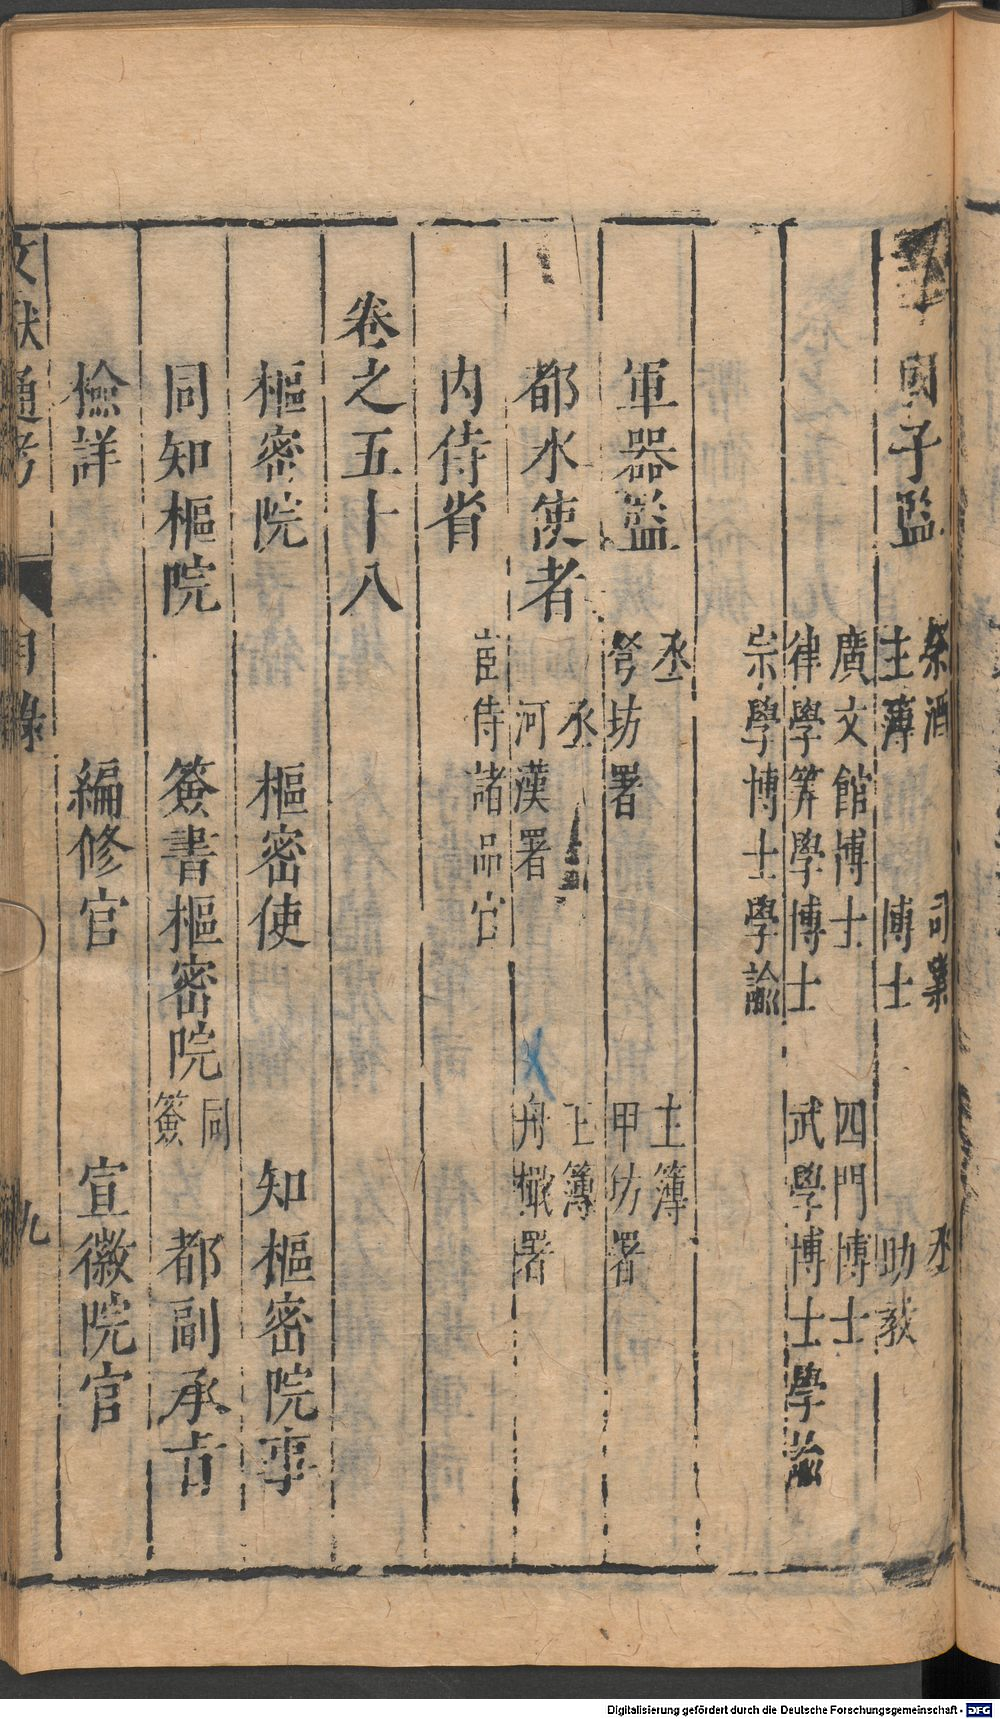 國子監
祭酒 司業 丞
主簿 博士 助敎
廣文館博士 四門博士
律學筭學博士 武學博士學諭
宗學博士學諭
軍器監
丞 主簿
弩坊署 甲坊署
都水使者
丞 主簿
河漢署 舟檝署
內侍省
宦侍諸品官
卷之五十八
樞密院 樞密使 知樞密院事
同知樞院 簽書樞密院 同簽 都副承旨
檢詳 編修官 宣徽院官
文獻通考 目錄 九
Digitalisierung gefördert durch die Deutsche Forschungsgemeinschaft - DFG